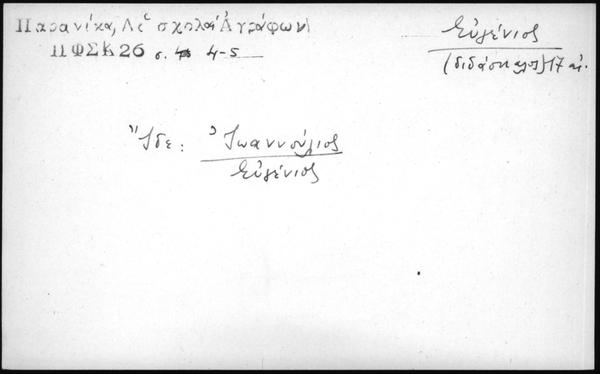 Παρανίκα, Αἱ σχολαί Ἀγράφων
ΠΦΣΚ26 σ. 4-5
Εὐγένιος
(διδάσκαλος) 17 αἰ.
Ἴδε: Ἰωαννούλιος
Εὐγένιος